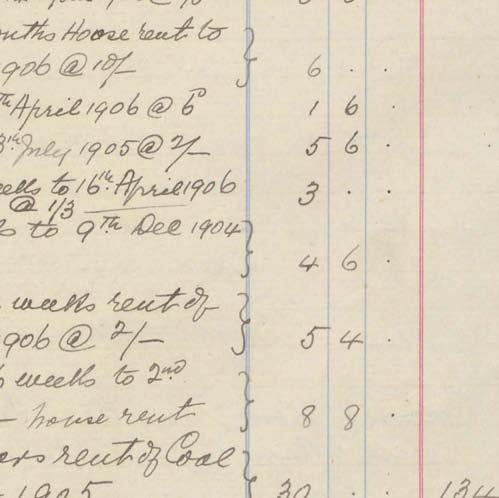 onths House rent to
1906 @ 10/- 6 . .
th April 1906 @ 6D 1 6 .
8th July 1905 @ 2/- 5 6 .
weeks to 16th April 1906
@ 1/3 3 . .
to 9th Dec 1904
4 6 .
weeks rent of
1906 @ 2/- 5 4 .
weeks to 2nd
- house rent 8 8 .
rent of Coal
1905 30 . . 134